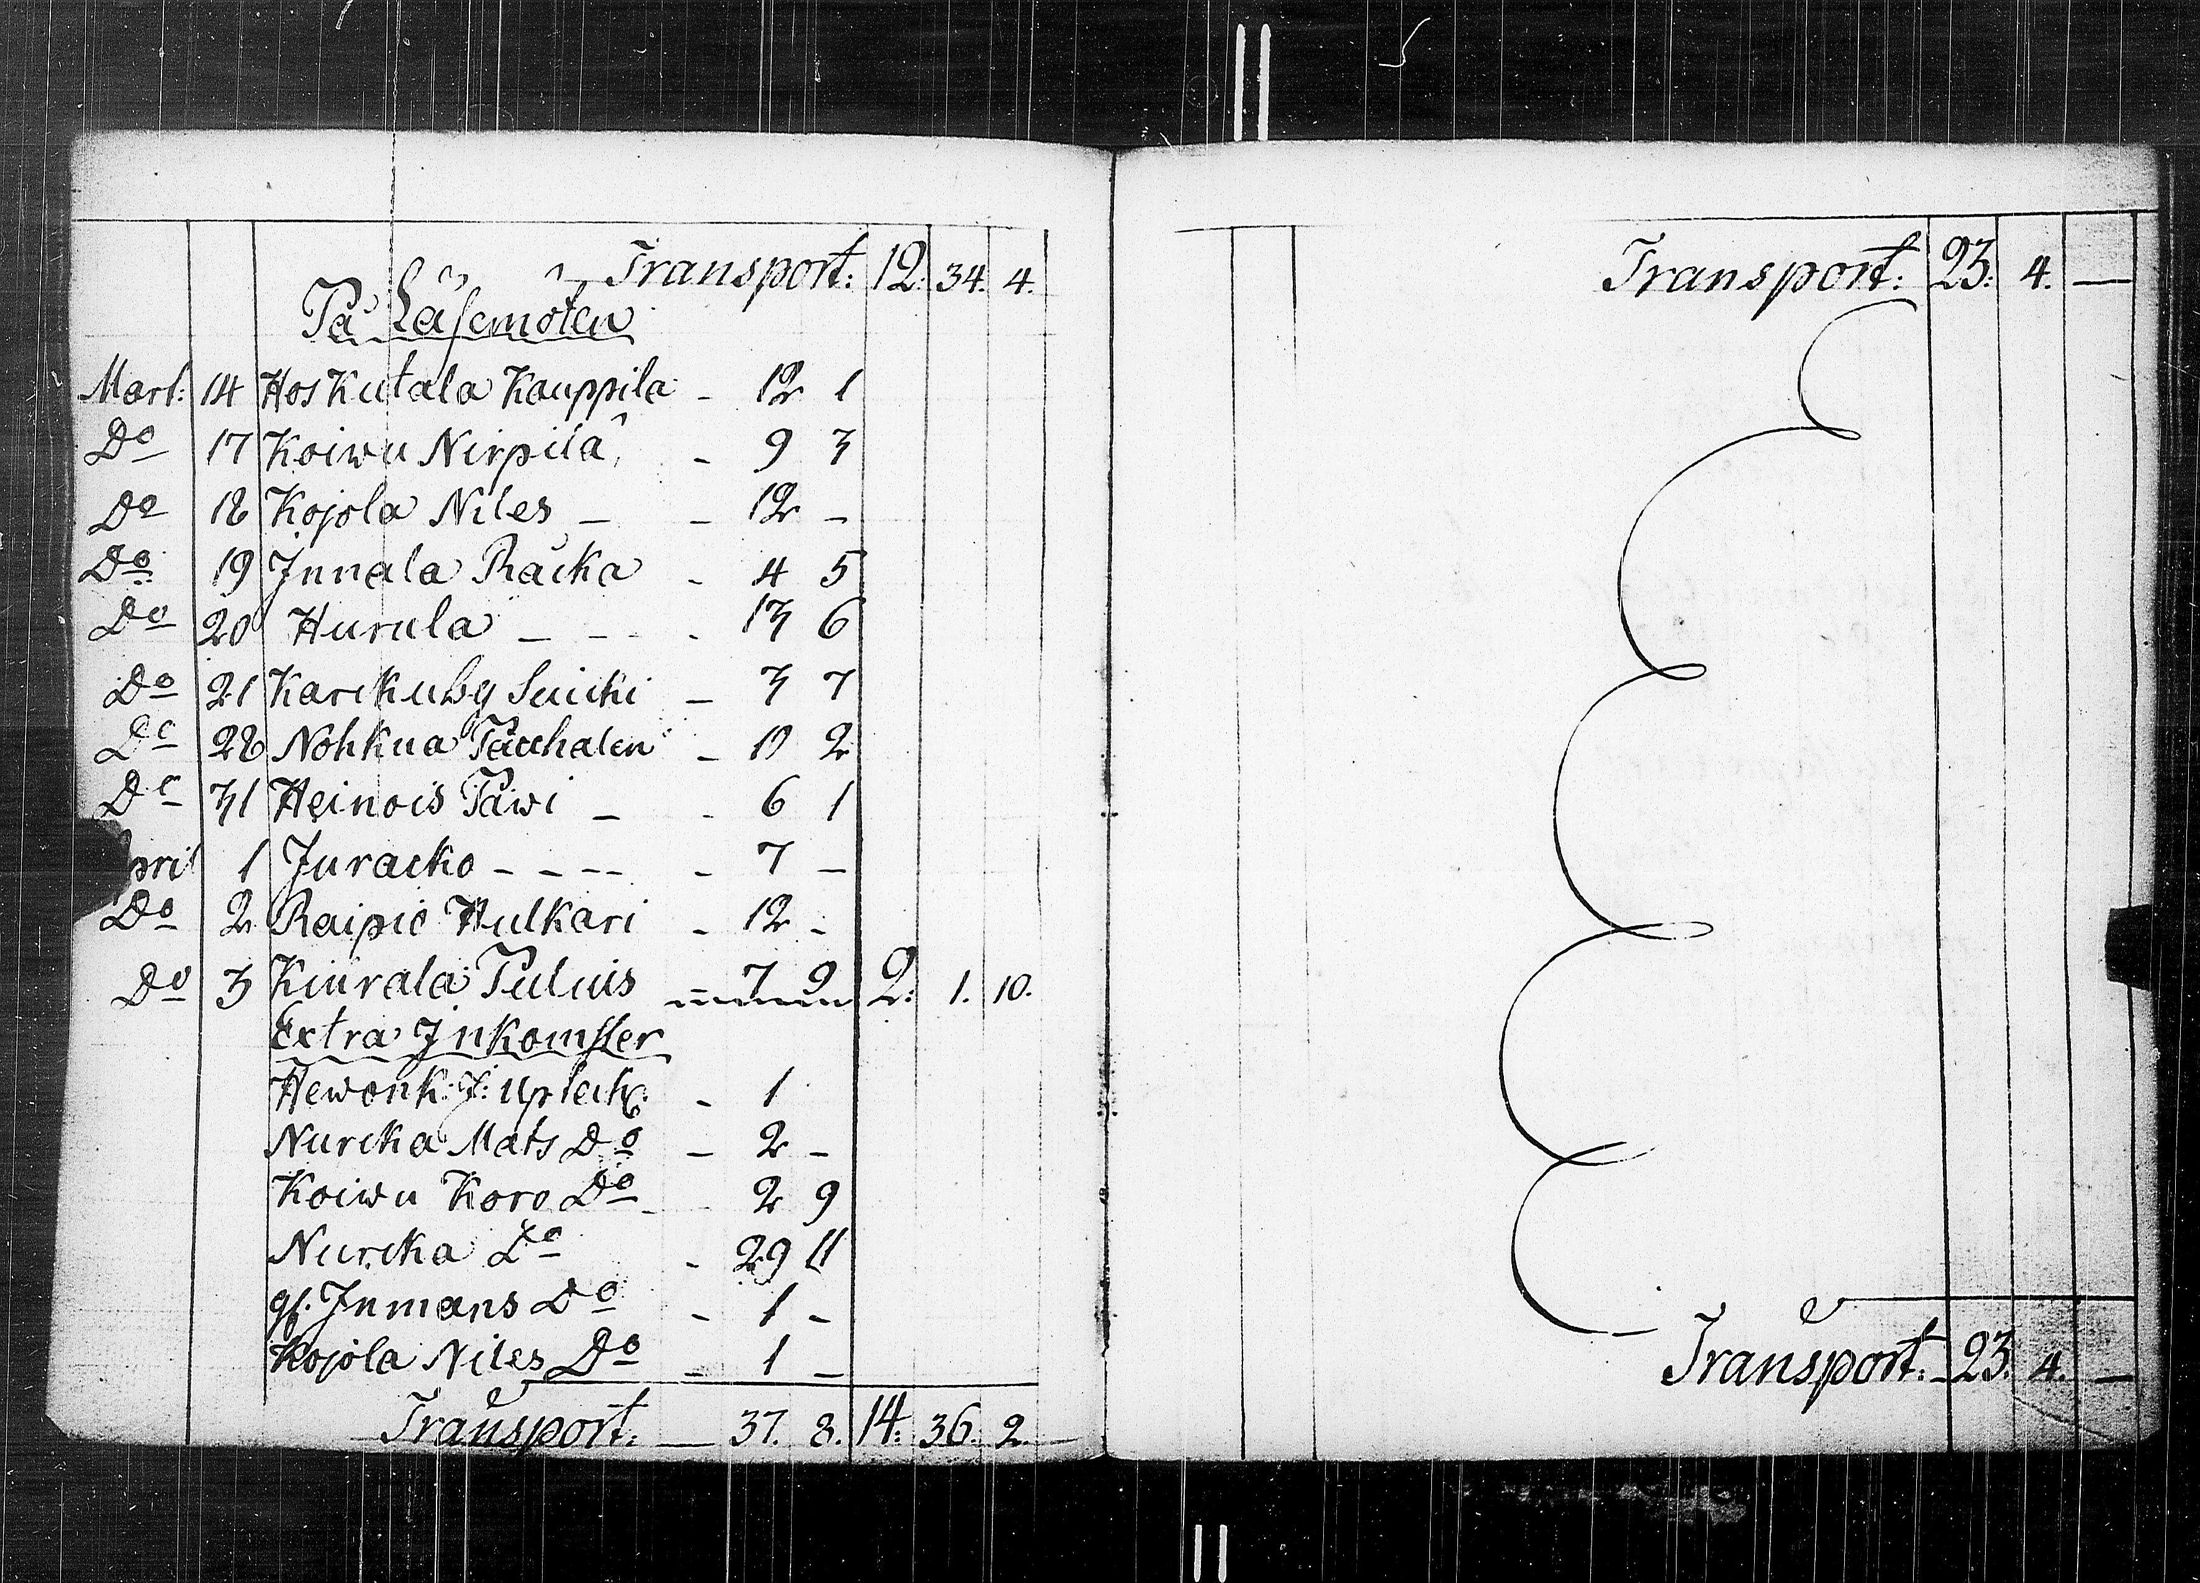 Transport: 12: 34. 4.
På Läsemöten
Mart: 14 Hos Kutala Kauppila - 12 1
Do 17 Koiwu Nirpilä - 9 3
Do 18 Kojola Niles - - 12 -
Do 19 Innala Räcka - 4 5
Do 20 Hurula - - - - 13 6
Do 21 Karckuby Suicki - 3 7
Do 28 Nohkua - 10 2
Do 31 Heinois Päwi - - 6 1
April 1 Juracko - - - - - 7 -
Do 2 Raipio Hulkari - 12 -
Do 3 Kiurala Puluis 7 9 2: 1. 10.
Extra Inkomster
Hewonk: J: - 1
Nurcka Mats Do - 2 -
Koiwu Koro Do - 2 9
Nurcka Do - 29 11
gf. Inmans Do - 1 -
Kojola Niles Do - 1 -
Transport. - 37. 8. 14: 36. 2.
Transport: 23: 4. -
Transport: 23. 4. -